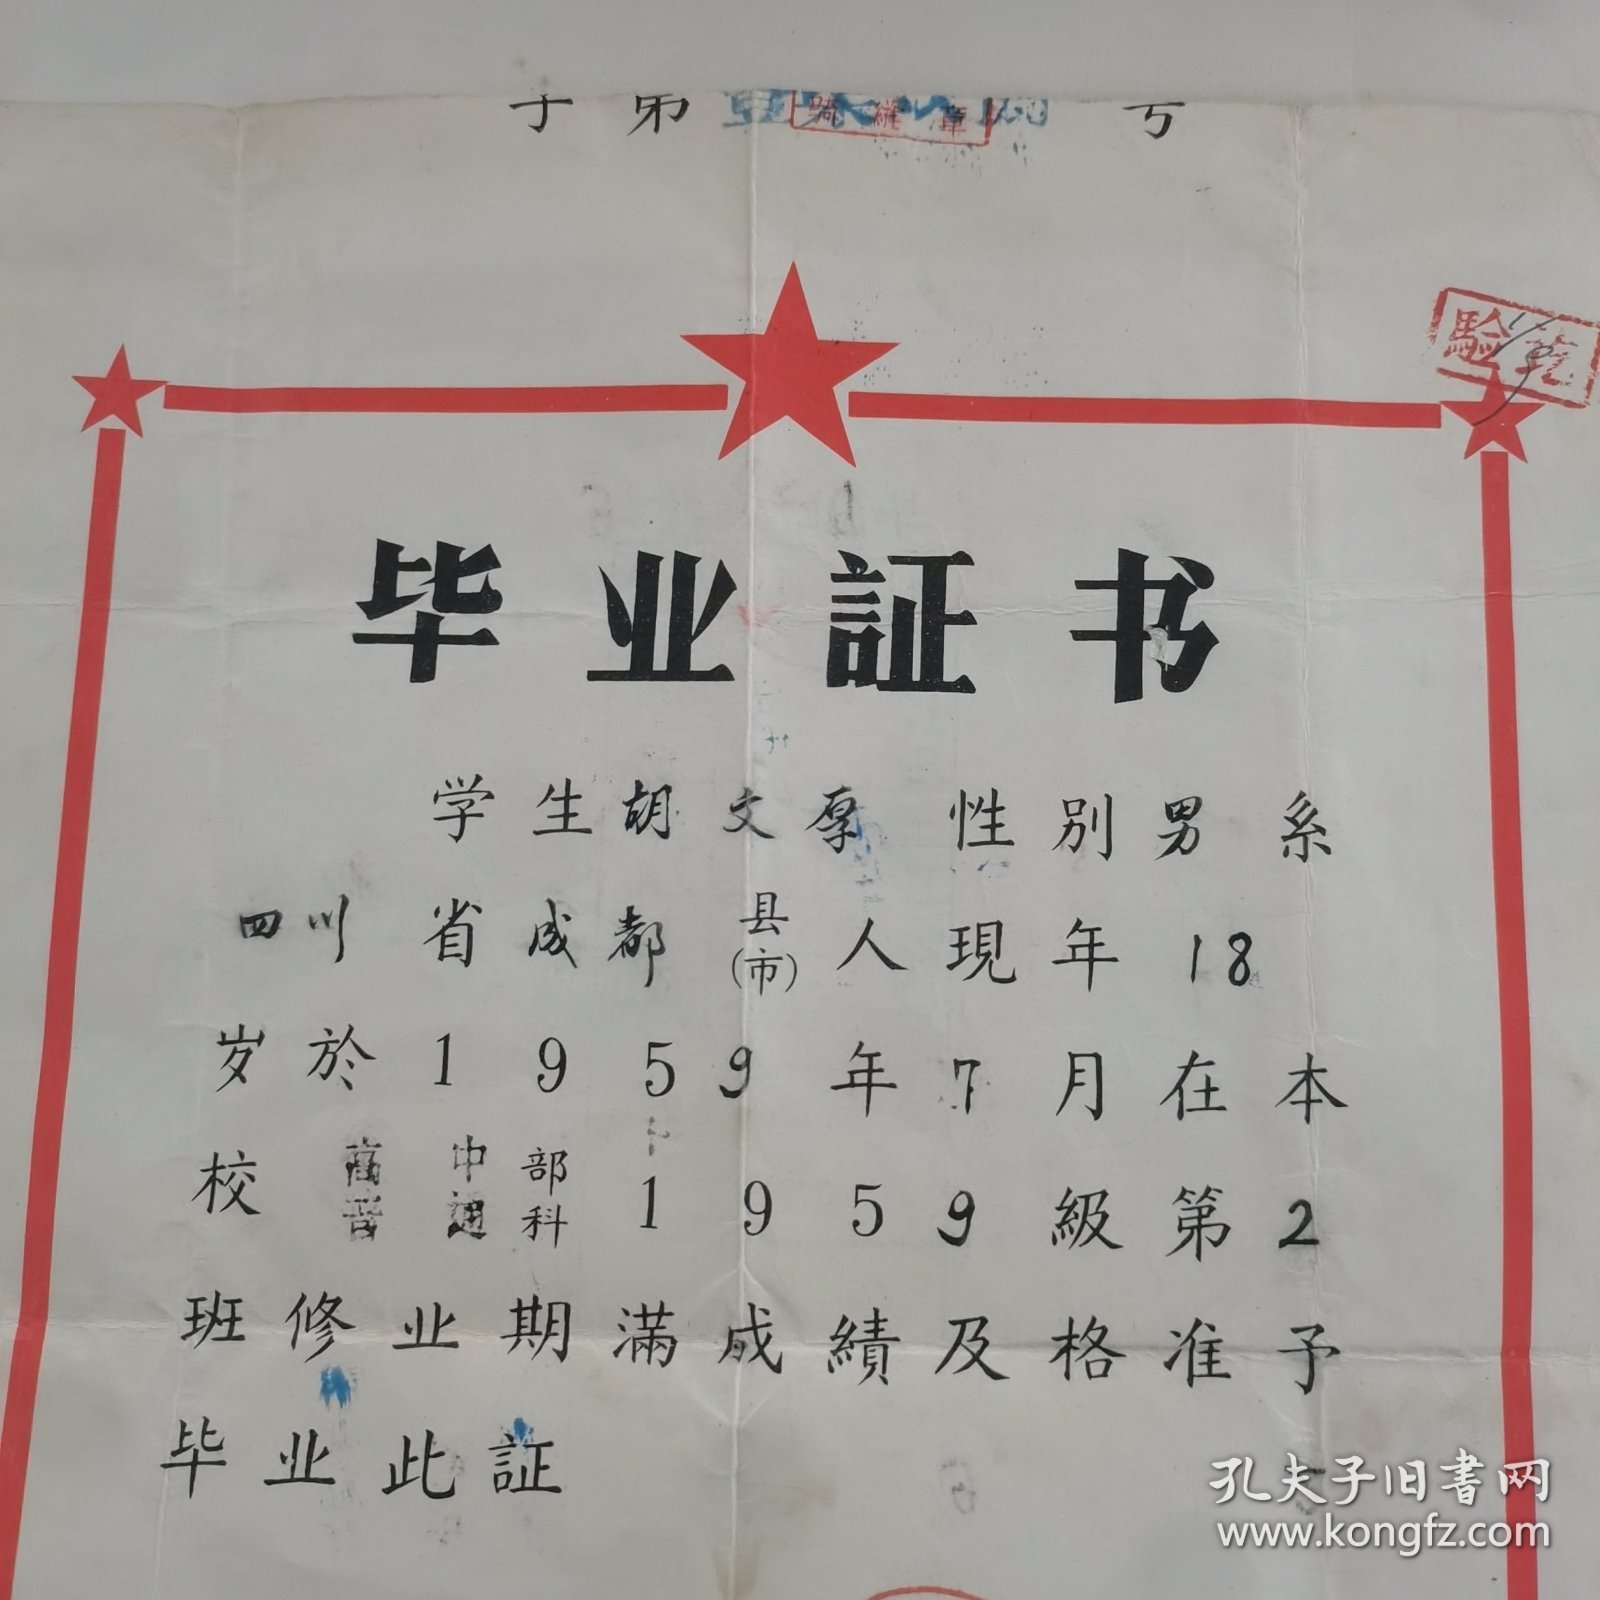 骑缝章
验讫
毕业証书
学生胡文厚 性别男 系
四川省成都县(市)人現年18
岁於1959年7月在本
校高中部普通科1959級第2
班修业期滿成績及格准予
毕业此証
孔夫子旧書网
www.kongfz.com